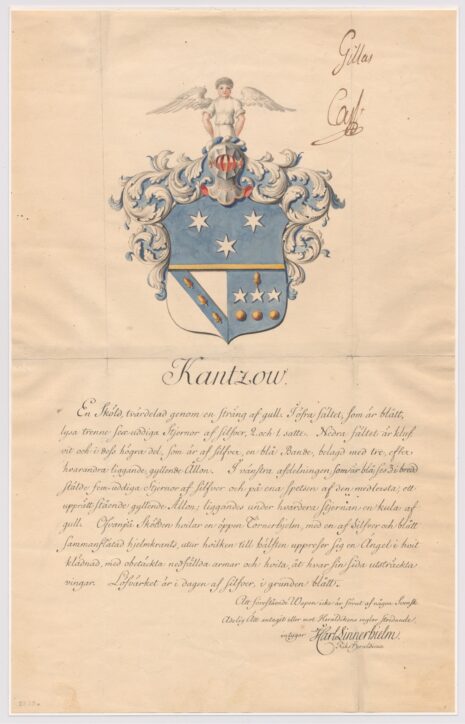 Gillas
Carl
Kantzow.
En Sköld, tvärdelad genom en sträng af gull. I öfra fältet, som är blått,
lysa trenne sex-uddiga Stjernor af silfver, 2 och 1 satte. Nedra fältet är kluf-
vit och i dess högra del, som är af silfver, en blå Bande, belagd med tre, efter
hvarandra liggande, gyllende Ållon. I vänstra afdelningen, som är blå, ses 3 i bred
stälde fem-uddiga Stjernor af Silfver och på ena spetsen af den medlersta, ett
upprätt stående, gyllende Ållon; liggandes under hvardera stjernan en kula af
gull. Ofvanpå Skölden hvilar en öppen Tornerhjelm, med en af Silfver och blått
sammanflätad hjelmkrants, utur hvilken till hälften uppreser sig en Ängel i hvit
klädnad, med obetäckta nedfällda armar och hvita, åt hvar sin sida utsträckta
vingar. Löfvärket är i dagen af silfver, i grunden blått.
Att förestående Wapen icke är förut af någon Svensk
Adelig Ätt antagit eller mot Heraldikens regler stridande,
intygar Karl Linnerhielm.
Riks Heraldicus